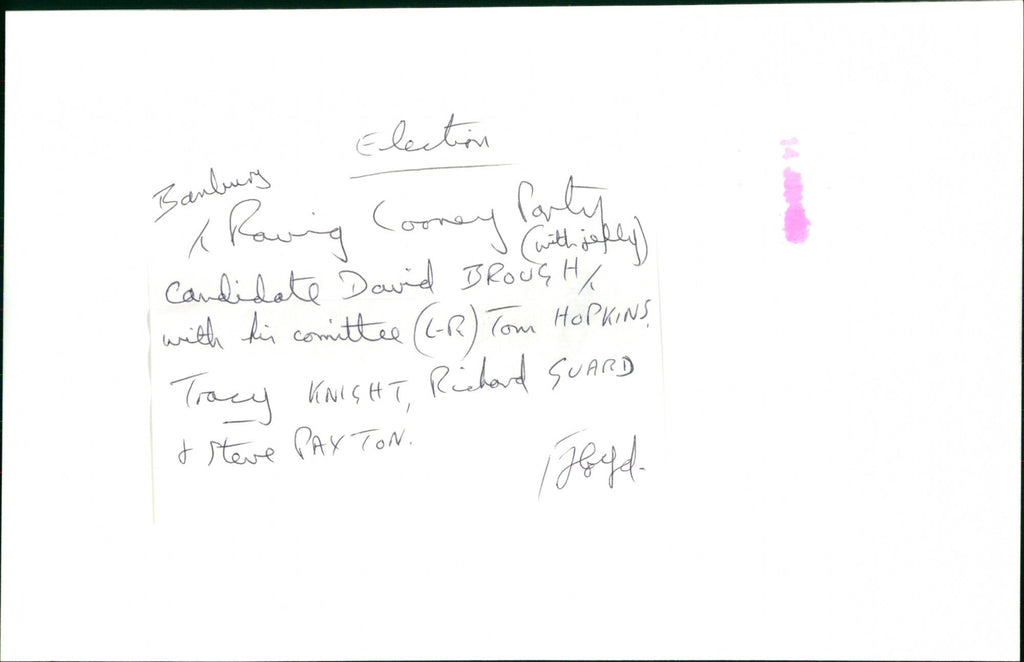 Election
Banbury
Raving Looney Party
(with jelly)
candidate David BROUGH
with his comittee (L-R) Tom HOPKINS,
Tracy KNIGHT, Richard GUARD
& Steve PAXTON.
Floyd.